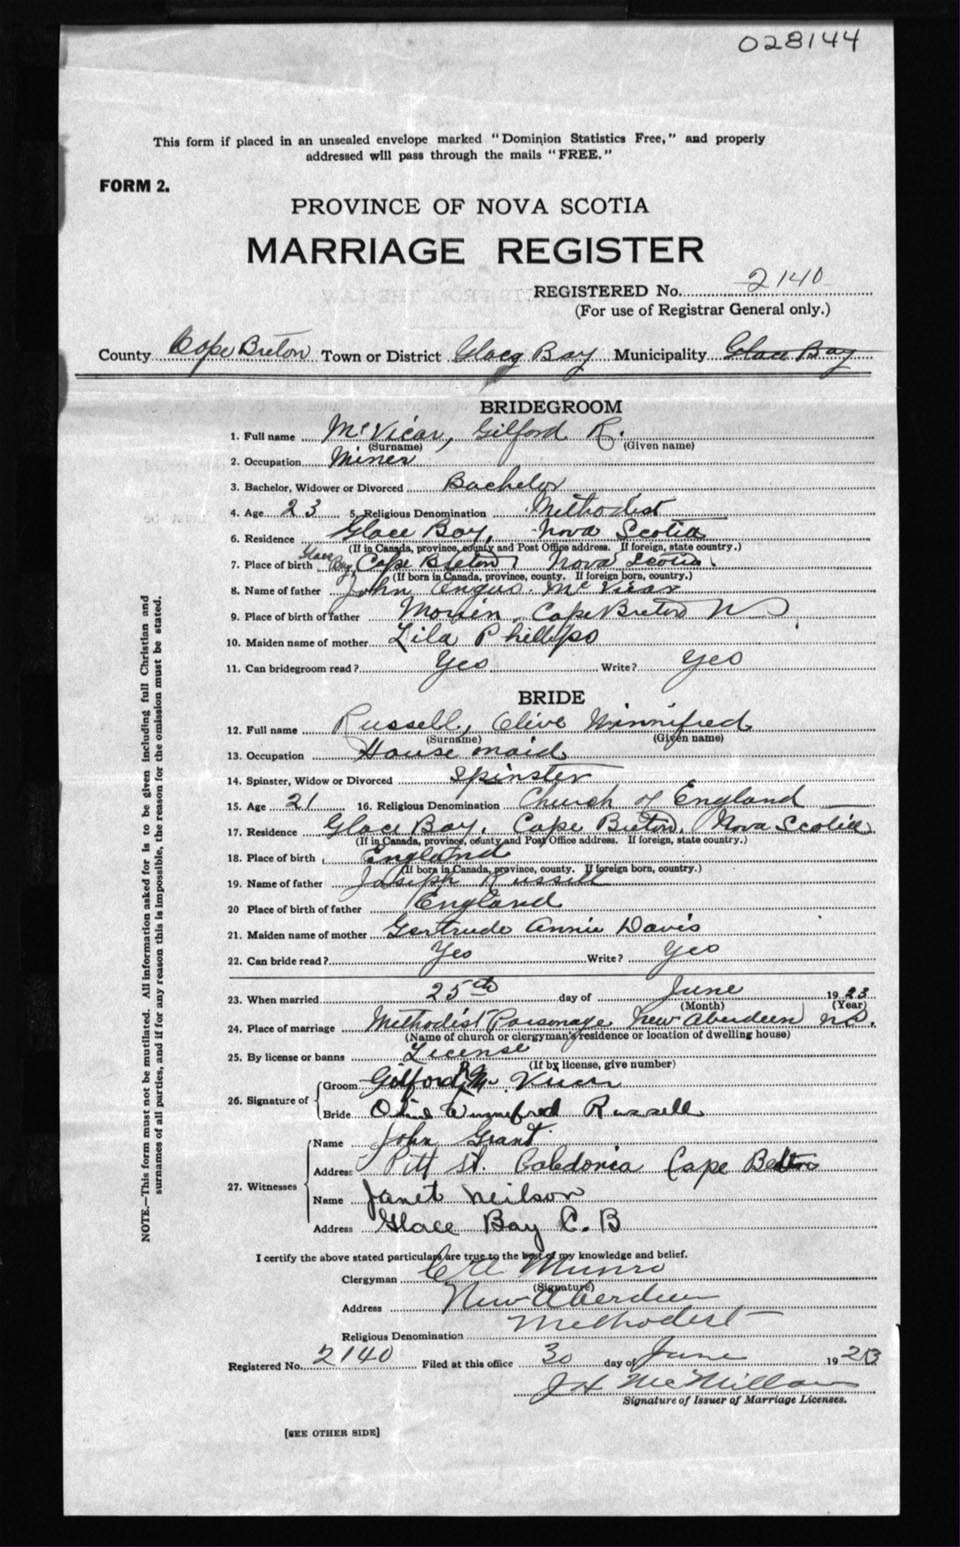 028144
This form if placed in an unsealed envelope marked "Dominion Statistics Free," and properly
addressed will pass through the mails "FREE."
FORM 2.
PROVINCE OF NOVA SCOTIA
MARRIAGE REGISTER
REGISTERED No. 2140
(For use of Registrar General only.)
County Cape Breton Town or District Glace Bay Municipality Glace Bay
BRIDEGROOM
1. Full name McVicar, Gilford R.
(Surname) (Given name)
2. Occupation Miner
3. Bachelor, Widower or Divorced Bachelor
4. Age 23 5. Religious Denomination Methodist
6. Residence Glace Bay, Nova Scotia
(If in Canada, province, county and Post Office address. If foreign, state country.)
7. Place of birth Glace Bay, Cape Breton, Nova Scotia
(If born in Canada, province, county. If foreign born, country.)
8. Name of father John Angus McVicar
9. Place of birth of father Morien, Cape Breton NS
10. Maiden name of mother Lila Phillips
11. Can bridegroom read? Yes Write? Yes
BRIDE
12. Full name Russell, Olive Winnifred
(Surname) (Given name)
13. Occupation House maid
14. Spinster, Widow or Divorced Spinster
15. Age 21 16. Religious Denomination Church of England
17. Residence Glace Bay, Cape Breton, Nova Scotia
(If in Canada, province, county and Post Office address. If foreign, state country.)
18. Place of birth England
(If born in Canada, province, county. If foreign born, country.)
19. Name of father Joseph Russell
20 Place of birth of father England
21. Maiden name of mother Gertrude Annie Davis
22. Can bride read? Yes Write? Yes
23. When married 25th day of June 1923
(Month) (Year)
24. Place of marriage Methodist Parsonage New Aberdeen N.S.
(Name of church or clergyman's residence or location of dwelling house)
25. By license or banns License
(If by license, give number)
26. Signature of
Groom Gilford R Mc Vicar
Bride Olive Winnifred Russell
27. Witnesses
Name John Grant
Address Pitt St. Caledonia Cape Breton
Name Janet Neilson
Address Glace Bay C.B
I certify the above stated particulars are true to the best of my knowledge and belief.
Clergyman C A Munro
(Signature)
Address New Aberdeen
Religious Denomination Methodist
Registered No. 2140 Filed at this office 30 day of June 1923
J H McMillan
Signature of Issuer of Marriage Licenses.
[SEE OTHER SIDE]
NOTE.—This form must not be mutilated. All information asked for is to be given including full Christian and
surnames of all parties, and if for any reason this is impossible, the reason for the omission must be stated.